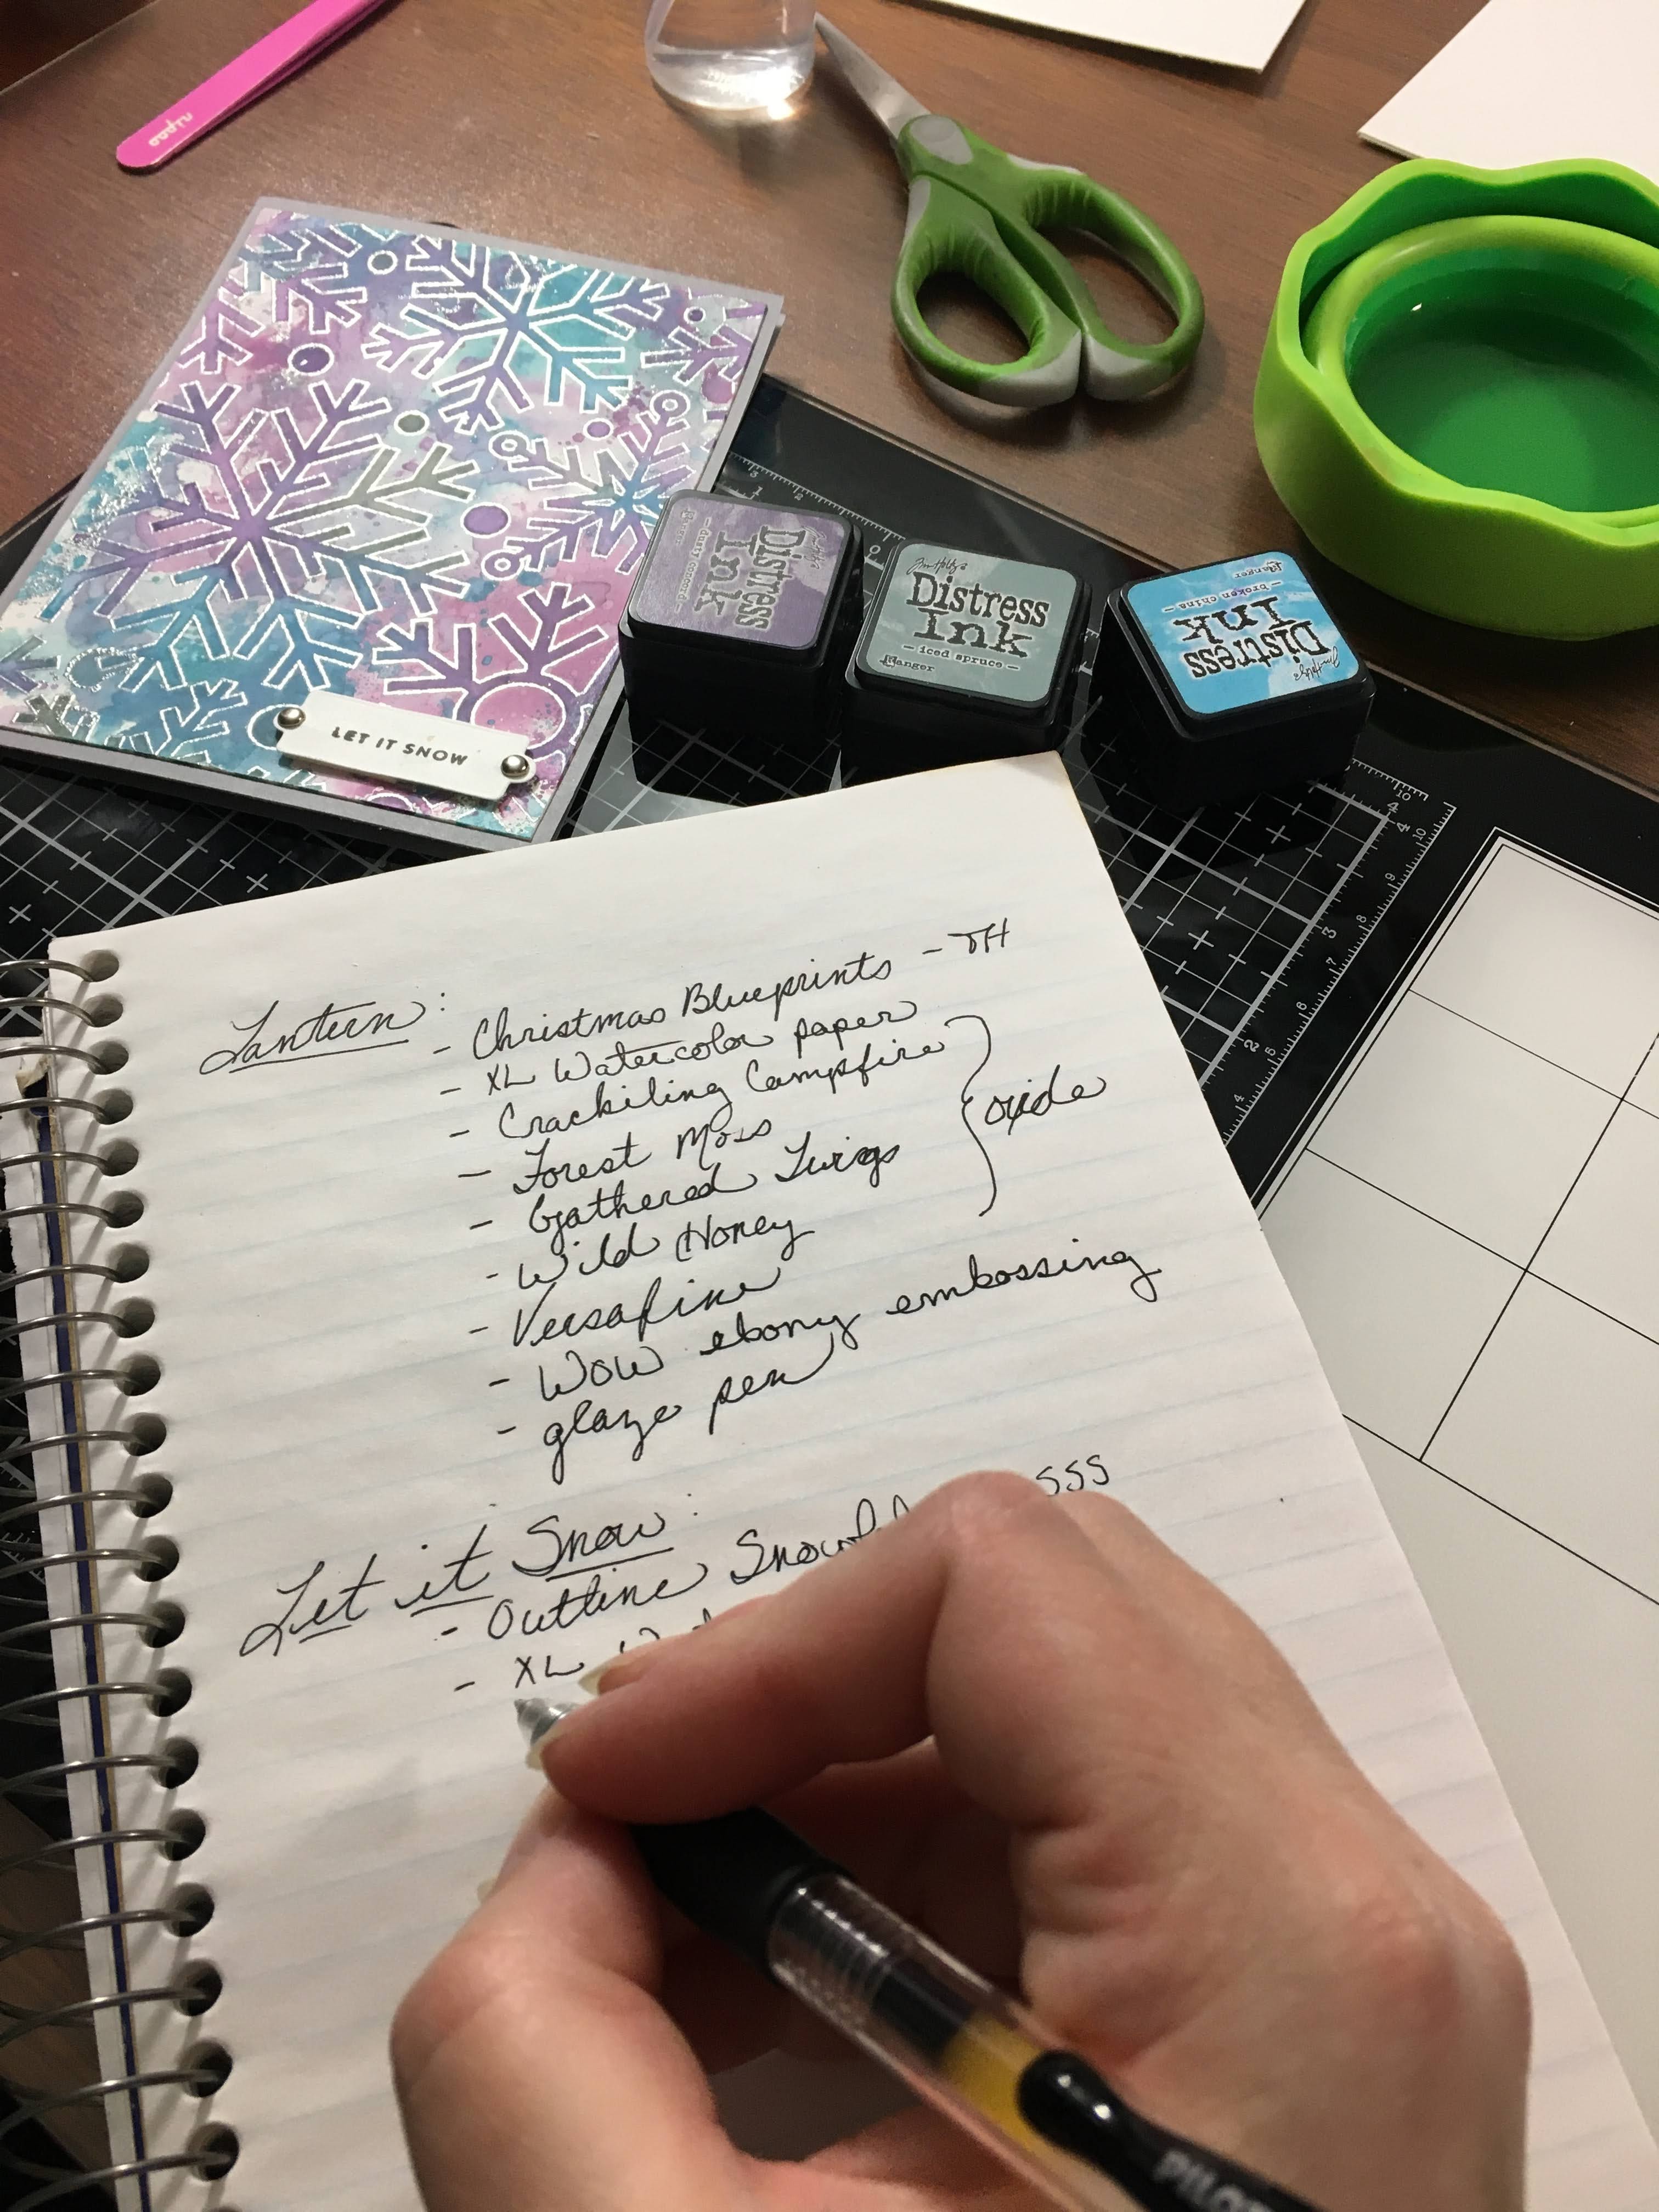 LET IT SNOW
Distress
Ink
dusty concord
Tim Holtz
Distress
Ink
- iced spruce -
Ranger
Tim Holtz
Distress
Ink
- broken china -
Ranger
Lantern:
- Christmas Blueprints - TH
- XL Watercolor paper
- Crackiling Campfire
- Forest Moss
- Gathered Twigs
oxide
- Wild Honey
- Versafine
- Wow ebony embossing
- glaze pen
Let it Snow:
- Outline SSS
- XL
PILOT